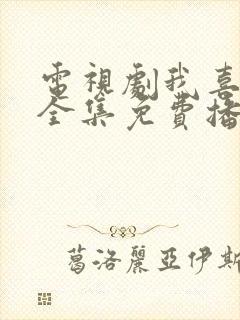 電視劇我喜
全集免費播
葛洛麗亞伊斯